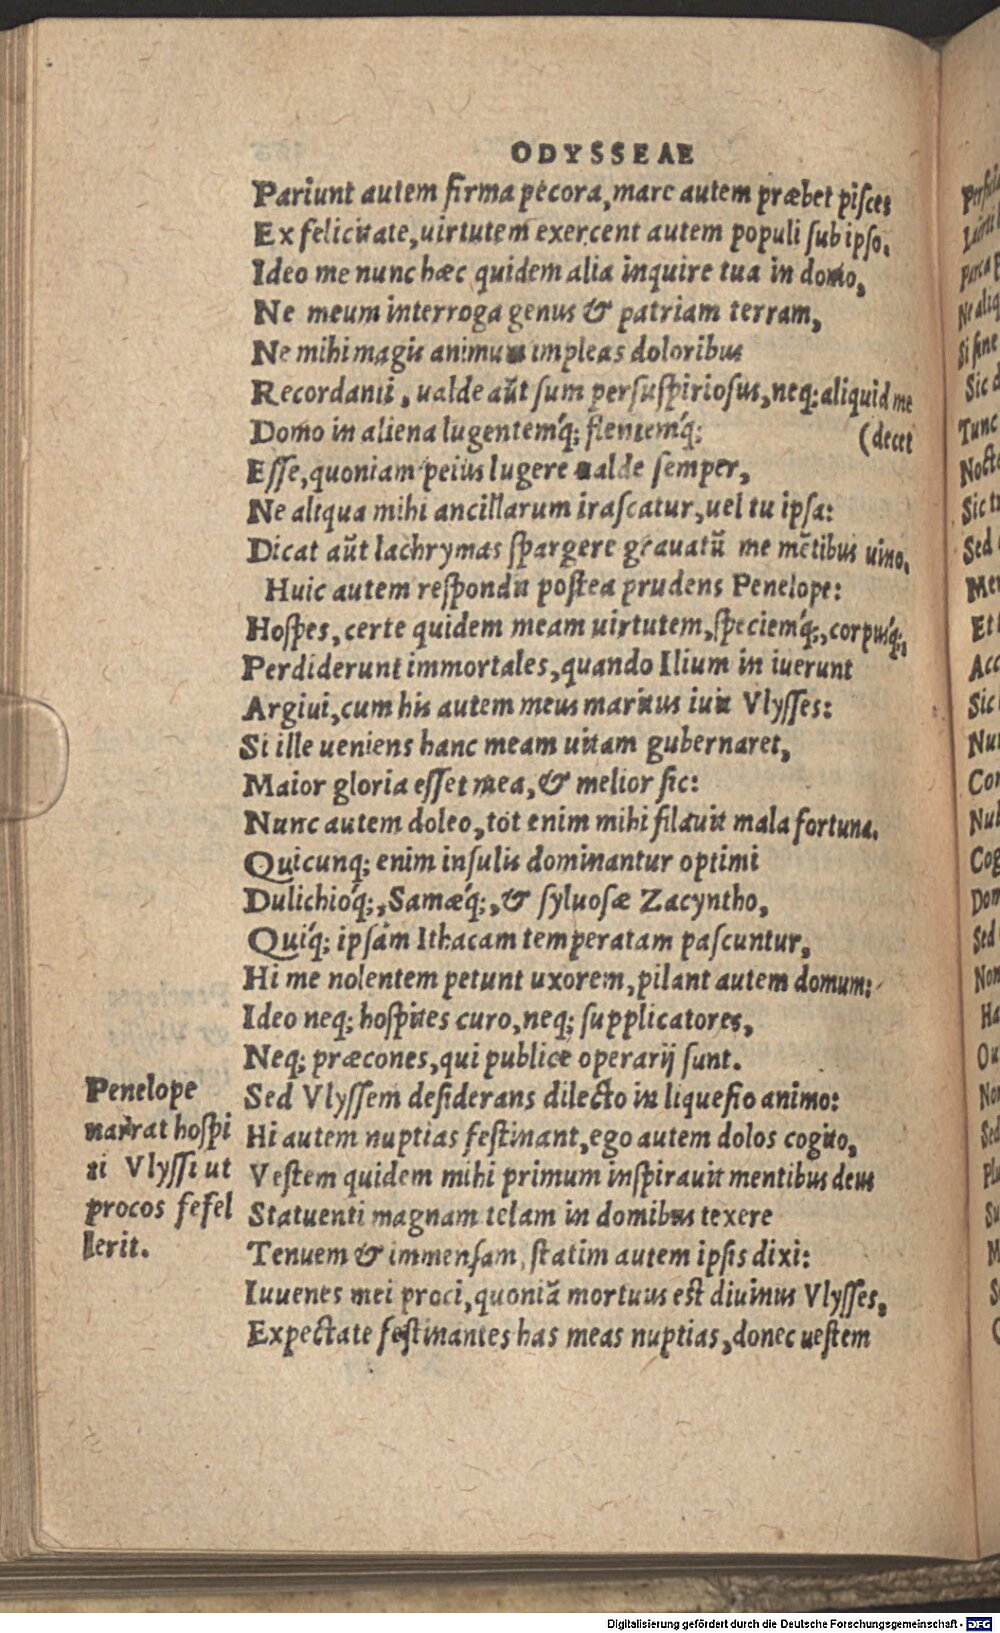 ODYSSEAE
Pariunt autem firma pecora, mare autem præbet piſces
Ex felicitate, uirtutem exercent autem populi ſub ipſo.
Ideo me nunc hæc quidem alia inquire tua in domo,
Ne meum interroga genus & patriam terram,
Ne mihi magis animum impleas doloribus
Recordanti, ualde aũt ſum perſuſpirioſus, neq; aliquid me
Domo in aliena lugentemq́; flentemq́; (decet
Eſſe, quoniam peius lugere ualde ſemper,
Ne aliqua mihi ancillarum iraſcatur, uel tu ipſa:
Dicat aũt lachrymas ſpargere grauatũ me mẽtibus uino.
Huic autem reſpondit poſtea prudens Penelope:
Hoſpes, certe quidem meam uirtutem, ſpeciemq́;, corpusq́;,
Perdiderunt immortales, quando Ilium in iuerunt
Argiui, cum his autem meus maritus iuit Vlyſſes:
Si ille ueniens hanc meam uitam gubernaret,
Maior gloria eſſet mea, & melior ſic:
Nunc autem doleo, tot enim mihi filauit mala fortuna.
Quicunq; enim inſulis dominantur optimi
Dulichioq́;, Samæq́;, & ſyluoſæ Zacyntho,
Quiq́; ipſam Ithacam temperatam paſcuntur,
Hi me nolentem petunt uxorem, pilant autem domum:
Ideo neq; hoſpites curo, neq; ſupplicatores,
Neq; præcones, qui publice operarij ſunt.
Sed Vlyſſem deſiderans dilecto in liquefio animo:
Hi autem nuptias feſtinant, ego autem dolos cogito,
Veſtem quidem mihi primum inſpirauit mentibus deus
Statuenti magnam telam in domibus texere
Tenuem & immenſam, ſtatim autem ipſis dixi:
Iuuenes mei proci, quoniã mortuus eſt diuinus Vlyſſes,
Expectate feſtinantes has meas nuptias, donec ueſtem
Penelope
narrat hoſpi
ti Vlyſſi ut
procos fefel
lerit.
Digitalisierung gefördert durch die Deutsche Forschungsgemeinschaft - DFG